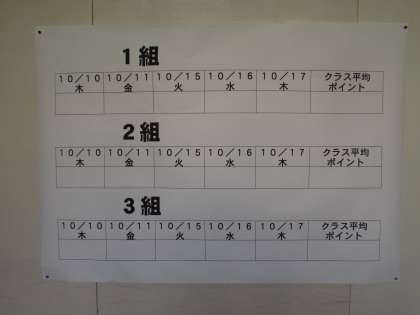 １組
１０／１０ １０／１１ １０／１５ １０／１６ １０／１７ クラス平均
木 金 火 水 木 ポイント
２組
１０／１０ １０／１１ １０／１５ １０／１６ １０／１７ クラス平均
木 金 火 水 木 ポイント
３組
１０／１０ １０／１１ １０／１５ １０／１６ １０／１７ クラス平均
木 金 火 水 木 ポイント